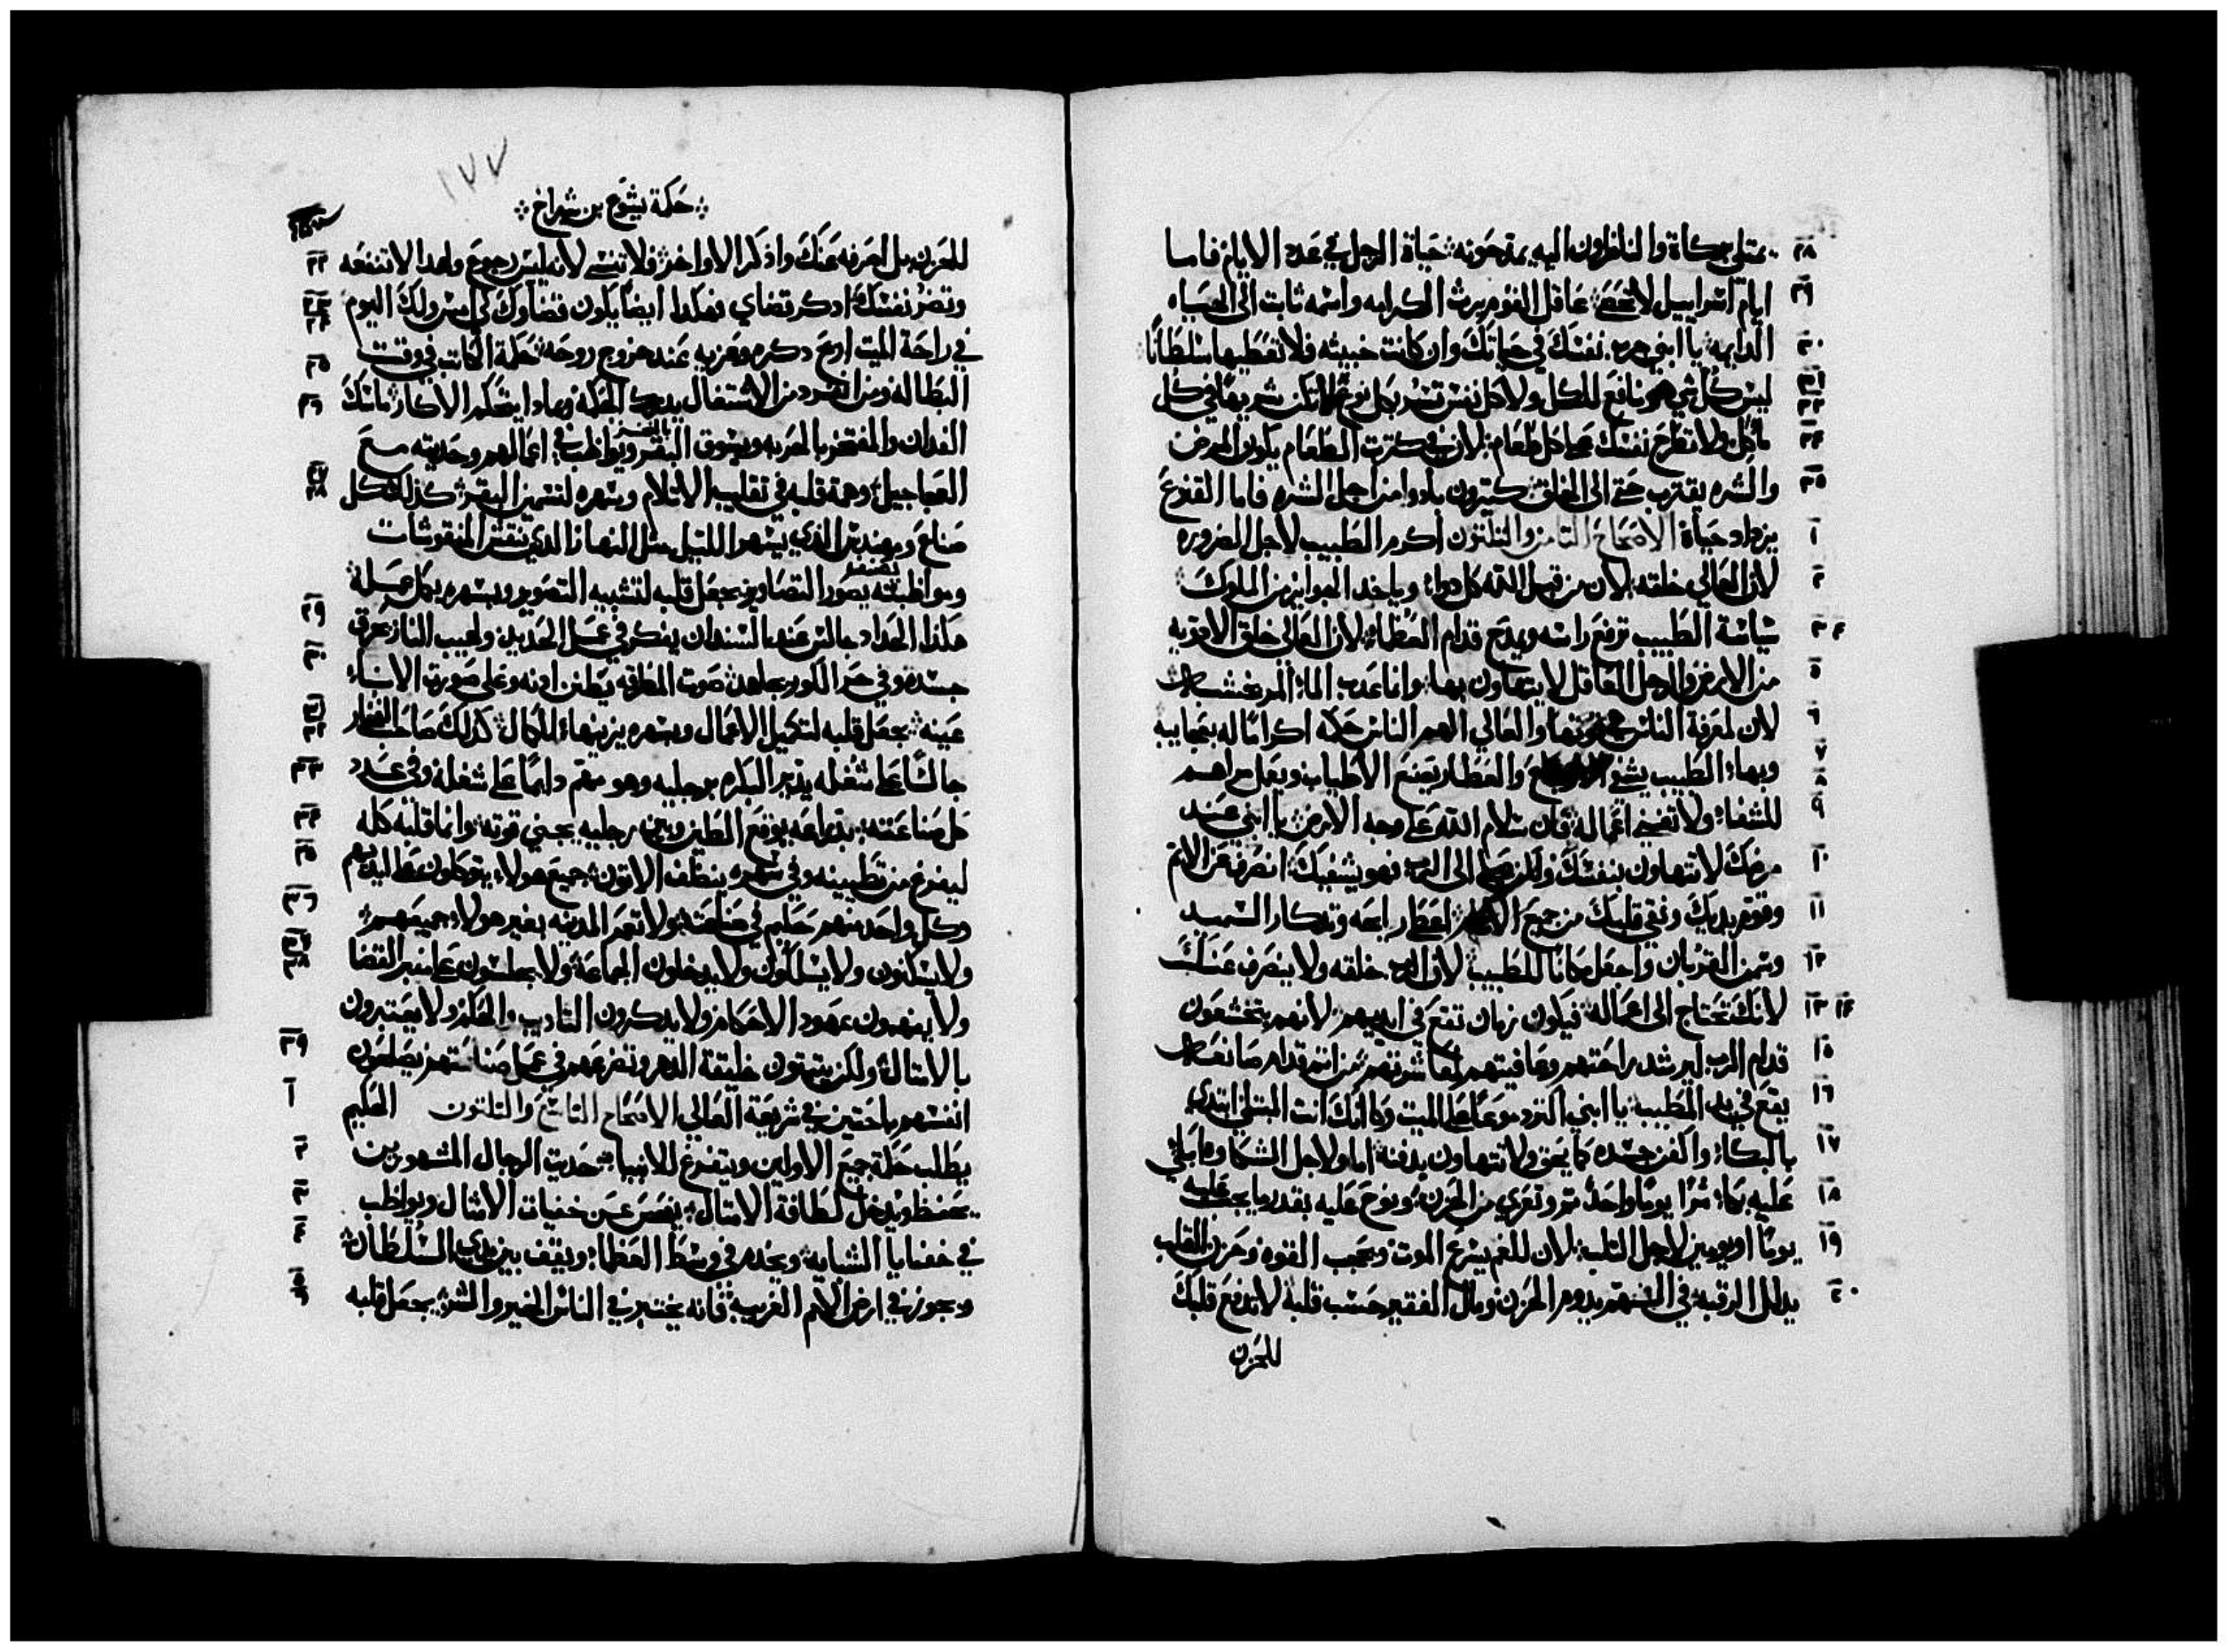 ٢٨ يمتلي بركاة والناظرون اليه يمدحونه حياة الرجل في عدد الايام فاما
٢٩ ايام اسراييل لا تحصى عاقل القوم يرث الكرامه واسمه ثابت الى الحياه
٣٠ الدايمه يا ابني جرب نفسك في حياتك وان كانت خبيثه فلا تعطيها سلطانًا
٣١ ٣٢ ليس كل شي هو نافع للكل ولا كل نفس تسر بكل نوع لا تكن شرهًا في كل
٣٣ ماكل ولا تطرح نفسك على كل طعام لان في كترت الطعام يكون المرض
٣٥ والشره يقترب حتى الى المغلق كتيرون بادوا من اجل الشره فاما القنوع
١ يزداد حياة الاصحاح التامن والتلتون اكرم الطبيب لاجل الضروره
٢ لان العالي خلقه لان من قبل الله كل دوا وياخد الجوايز من الملوك
٣ ٤ سياسة الطبيب ترفع راسه ويمدح قدام العظماء لان العالي خلق الادويه
٥ من الارض والرجل العاقل لا يتهاون بها واما عدب الماء المر بخشبه
٦ لان لمعرفة الناس قوتها والعالي الهم الناس حكمه اكرامًا له بعجايبه
٧ ٨ وبهاء الطبيب يشفي والعطار يصنع الاطياب ويعمل مراهم
٩ للشفاء ولا تفنى اعماله فان سلام الله على وجه الارض يا ابني عند
١٠ مرضك لا تتهاون بنفسك ولكن صلي الى الرب فهو يشفيك انصرف عن الاتم
١١ وقوم يديك ونقي قلبك من جميع اعط رايحه وتدكار السميد
١٢ وسمن القربان واجعل مكانًا للطبيب لان الرب خلقه ولا ينصرف عنك
١٣ ١٤ لانك تحتاج الى اعماله فيكون زمان تقع في ايديهم لانهم يتخشعون
١٥ قدام الرب ليرشد راحتهم وعافيتهم لمعاشرتهم من اتم قدام صانعه
١٦ يقع في يد الطبيب يا ابني اكتر دموعًا على الميت وكانك انت المبتلي ابتدي
١٧ بالبكاء واكفن جسده كما يحق ولا تتهاون بدفنه اما ولاجل الشكاوه ابكي
١٨ عليه بكاء مرًا يومًا واحد تم وتعزي من الحزن ونوح عليه بقدر ما يجب عليه
١٩ يومًا او يومين لاجل التلب لان للغم يسرع الموت ويحجب القوه وحزن القلب
٢٠ يدلل الرقبه في السهم يدوم الحزن ومال الفقير حسب قلبه لا تدفع قلبك
للحزن
١٧٧
حكمة يشوع بن شيراخ
٢٢ للحزن بل اصرفه عنك واذكر الاواخر فلا تنسى لانه ليس رجوع ولهدا لا تنفعه
٢٣ وتضر نفسك ادكر قضاي فهكدا ايضًا يكون قضاوك لي امس ولك اليوم
٢٤ ٢٥ في راحة الميت ارح دكره وعزيه عند خروج روحه حكمة الكاتب في وقت
٢٦ البطاله ومن انفرد من الاشتغال يدرك الحكمه وبمادا يتحكم الاكار ماسك
الفدان والمفتخر بالحربه ويسوق البقر ويواظب في اعمالهم وحديته مع
٢٧ ٢٨ العجاجيل وهمة قلبه في تقليب الاتلام وسهره لتسمين البقر كذلك كل
صناع ومهندس الذي يسهر الليل مثل النهار الذي نقش المنقوشات
ومواظبته يصور التصاوير يجعل قلبه لتشبيه التصوير وبسهره يكمل عمله
٢٩ هكذا الحداد جالس عند السندان يفكر في عمل الحديد ولهيب النار يحرق
٣٠ جسده وفي حر الكور يجاهد صوت المطرقه يطنن ادنه وعلى صورت الاناء
٣١ ٣٢ عينه يجعل قلبه لتكميل الاعمال وسهره يزينها للكمال كذلك صاحب الفخار
٣٣ جالسًا على شغله يدير البكره برجليه وهو مهتم دايمًا على شغله وفي عدد
٣٤ كل صناعته بدراعه يوقع الطين وبين رجليه يحني قوته وانما قلبه كله
٣٥ ليفرغ من تطيينه وفي سهره ينظف الاتون جميع هولاء يتوكلون على ايديهم
٣٦ وكل واحد منهم حكيم في صناعته ولا تعمر المدينه بغير هولاء جميعهم
٣٧ ٣٨ ولا يسكنون ولا يسلكون ولا يدخلون الجماعة ولا يجلسون على منبر القضا
ولا يفهمون عهود الاحكام ولا يدكرون التاديب والحكم ولا يعتبرون
٣٩ بالامتال ولكن يتبتون خليقة الدهر وتضرعهم في عمل صناعتهم يصلحون
١ انفسهم باحتين في شريعة العالي الاصحاح التاسع والتلتون الحكيم
٢ يطلب حكمة جميع الاولين ويتفرغ للانبياء حديت الرجال المشهورين
٣ يحفظ ويدخل لطافة الامتال يفحص عن خفيات الامتال ويواظب
٤ في خفنايا الشبايه ويخدم في وسط العظماء ويقف بين يدي السلطان
٥ ٦ ويجوز في ارض الامم الغريبه فانه يختبر في الناس الخير والشر يجعل قلبه